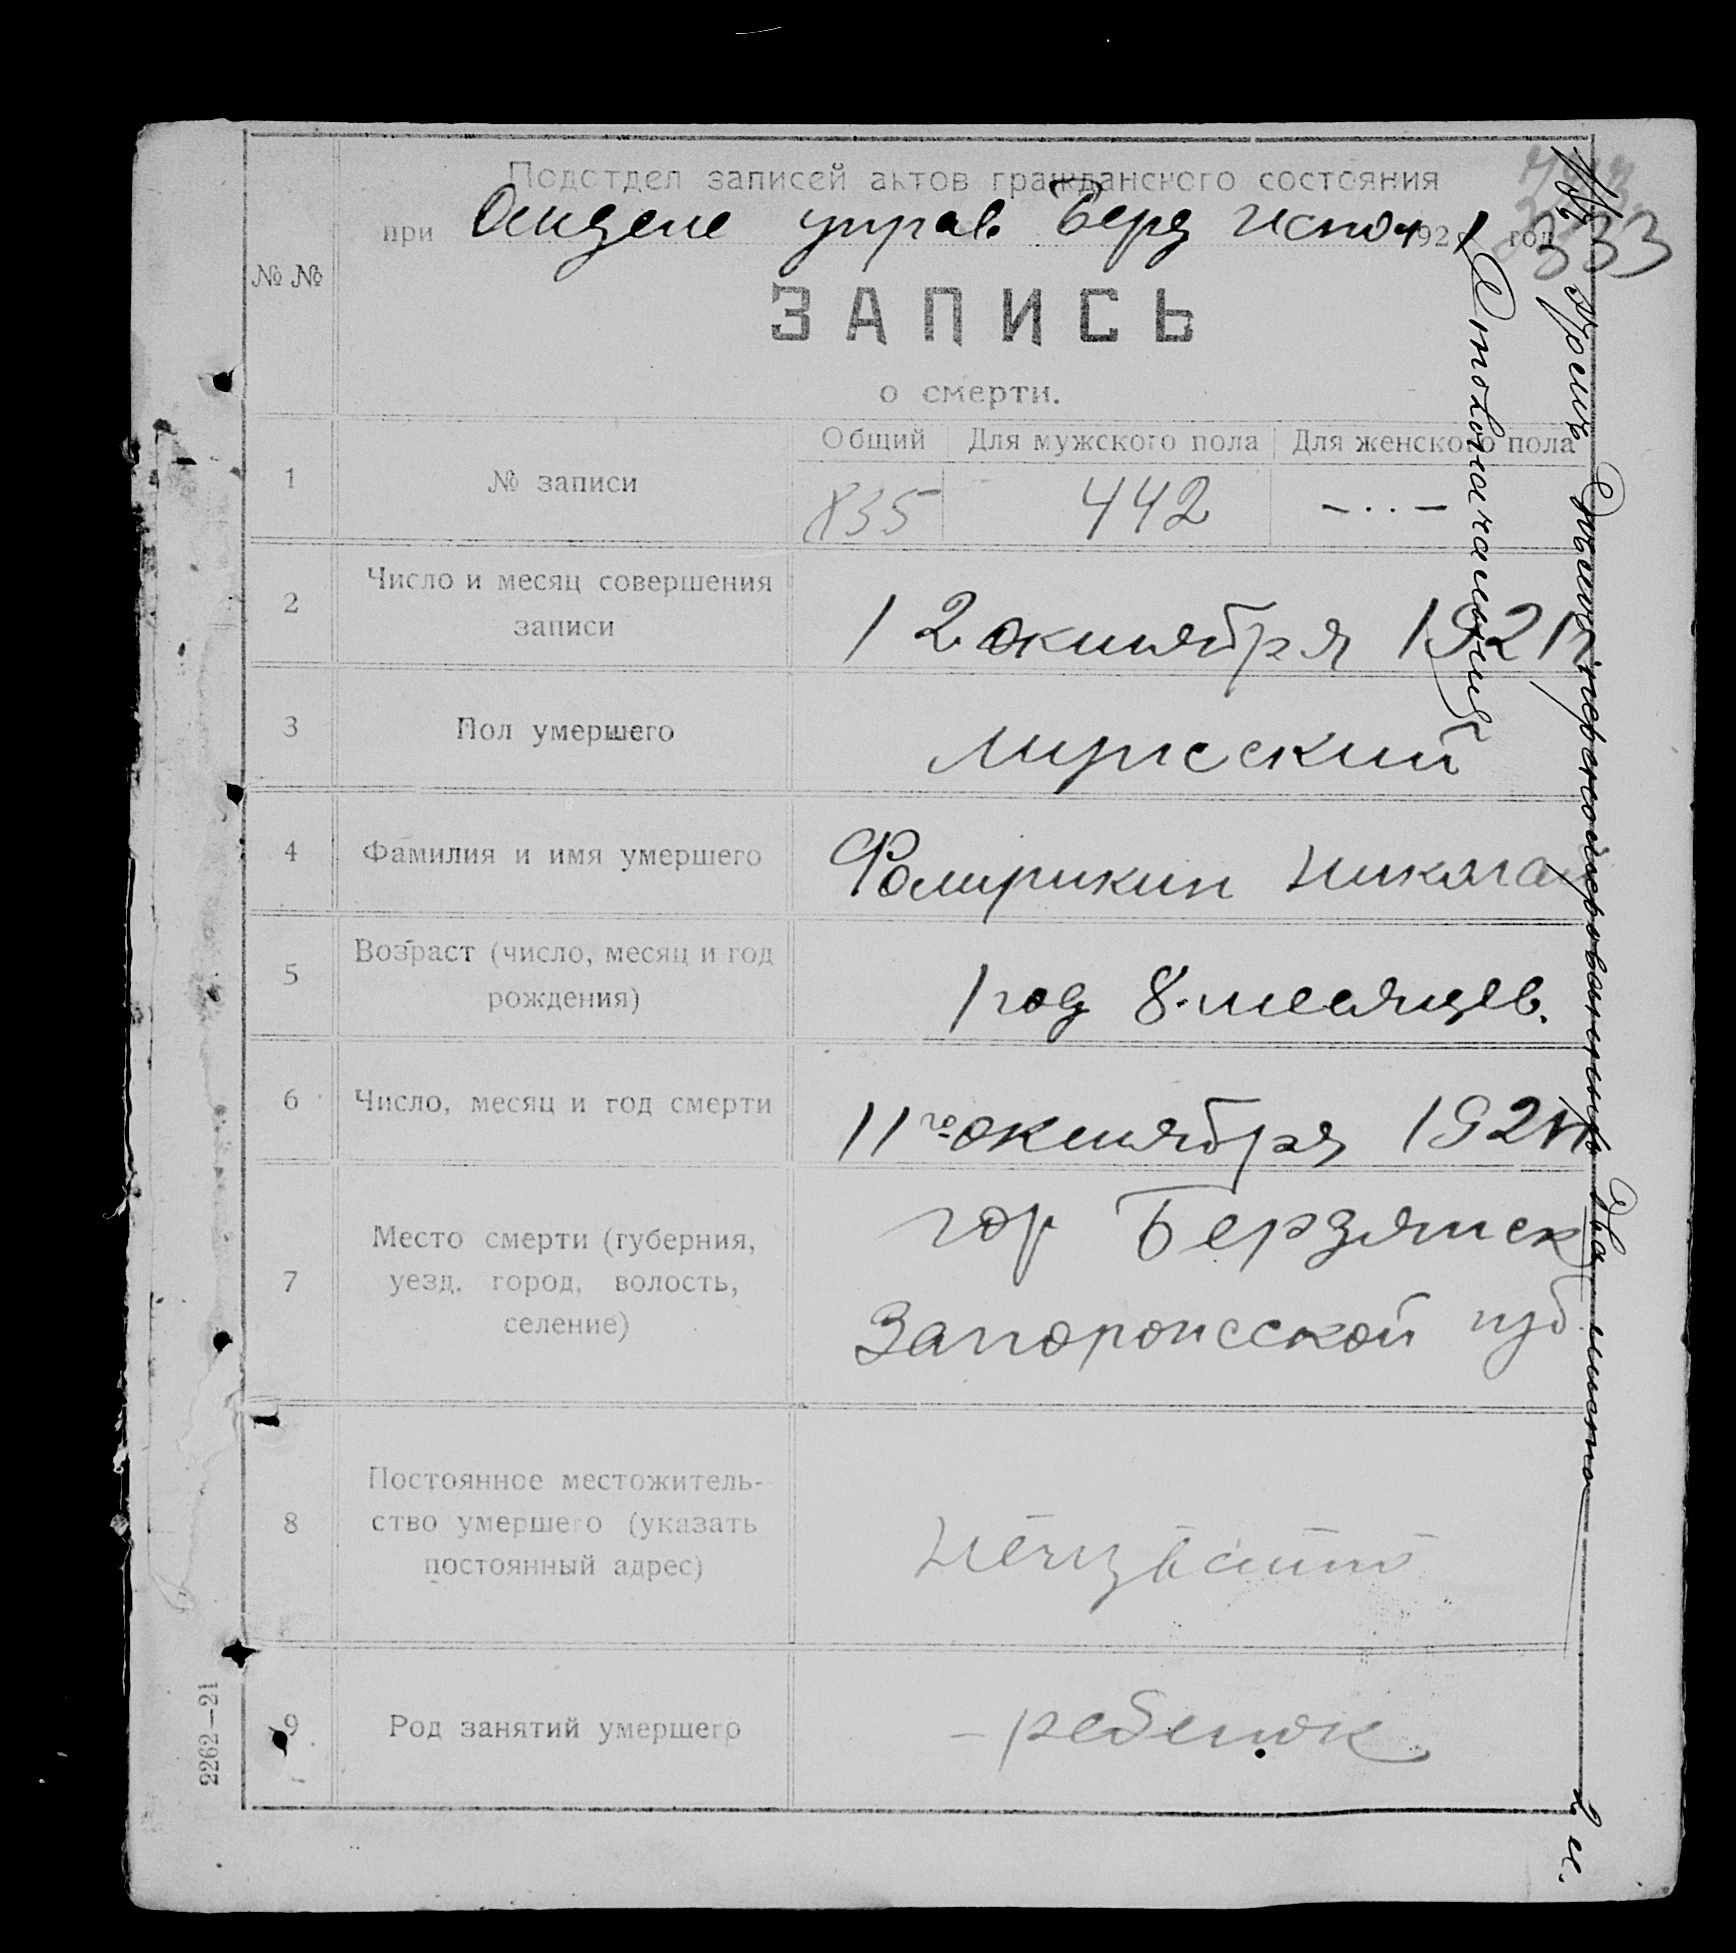 Подотдел записей актов гражданского состояния
при Отделе управ. Берд Испол 1921 год
333
№ №
ЗАПИСЬ
о смерти.
1
№ записи
Общий
Для мужского пола
Для женского пола
835
442
— . . —
2
Число и месяц совершения
записи
12 октября 1921 г.
3
Пол умершего
мужской
4
Фамилия и имя умершего
Николай
5
Возраст (число, месяц и год
рождения)
1 год 8 месяцев.
6
Число, месяц и год смерти
11го октября 1921 г.
7
Место смерти (губерния,
уезд, город, волость,
селение)
гор Бердянск
Запорожской губ
8
Постоянное местожитель-
ство умершего (указать
постоянный адрес)
неизвестно
9
Род занятий умершего
– ребенок
2262—21
пронумерованный два листа
2 л.